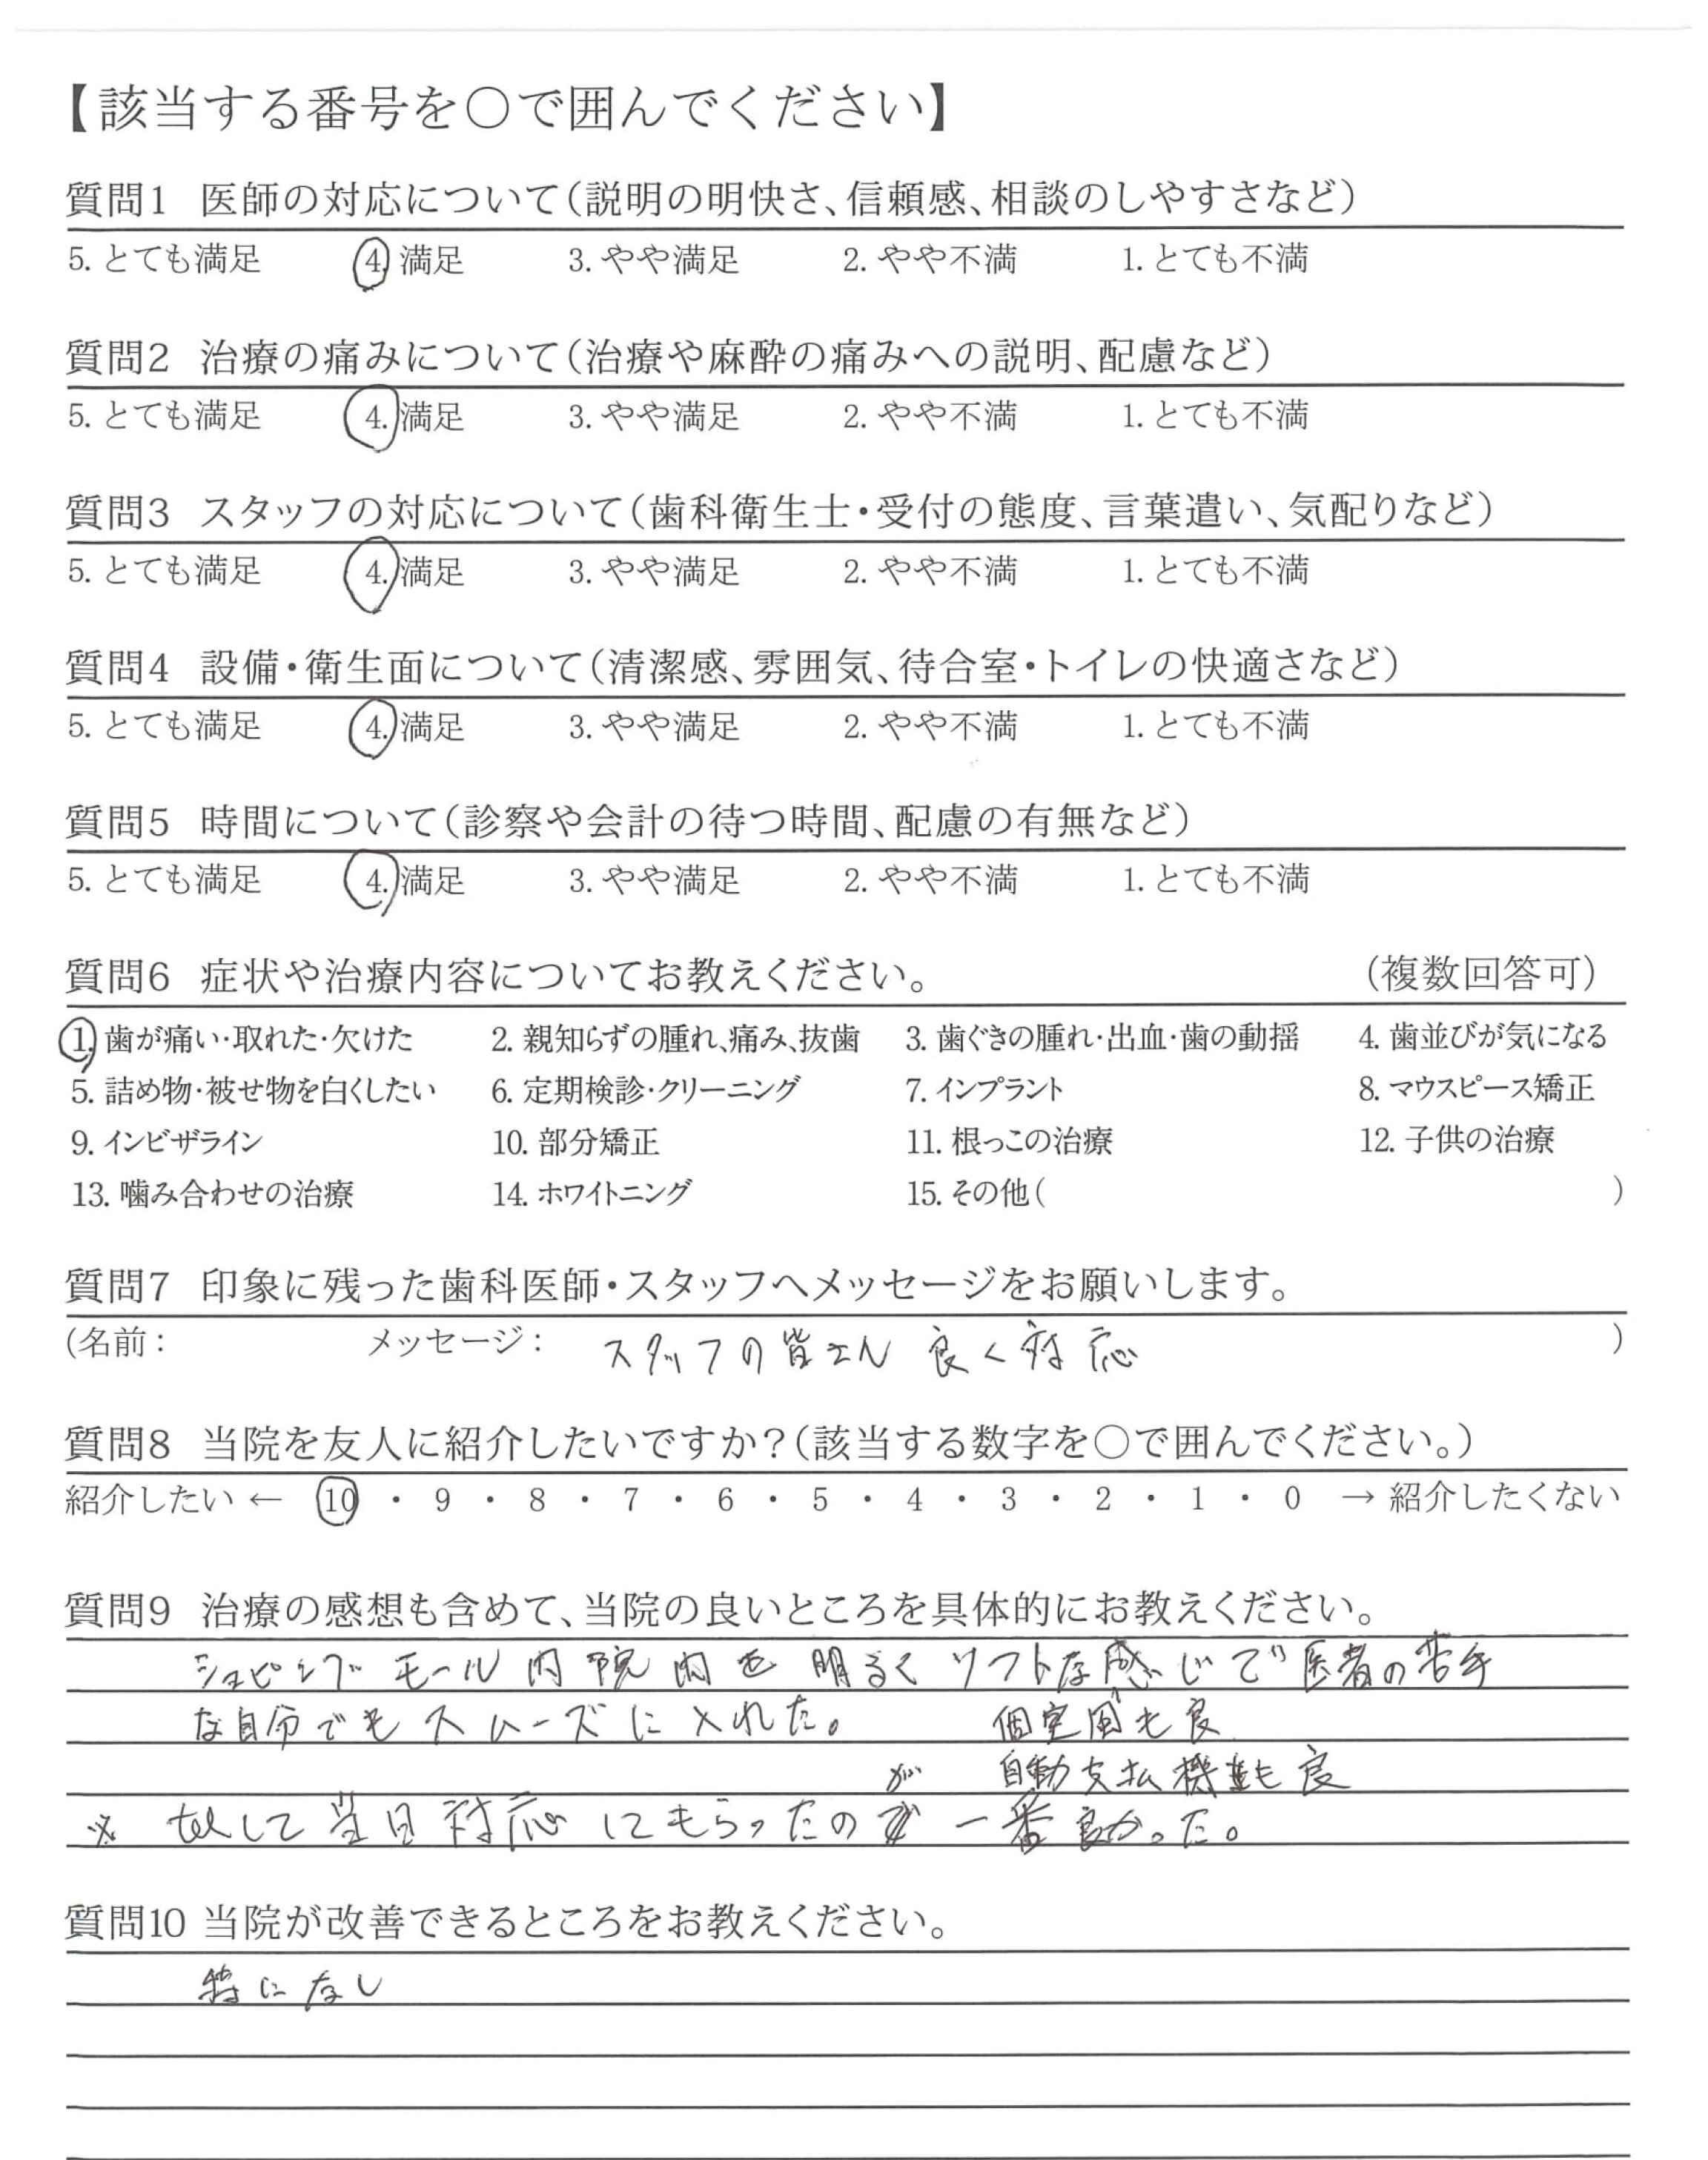 【該当する番号を○で囲んでください】
質問1 医師の対応について(説明の明快さ、信頼感、相談のしやすさなど)
5. とても満足 4. 満足 3. やや満足 2. やや不満 1. とても不満
質問2 治療の痛みについて(治療や麻酔の痛みへの説明、配慮など)
5. とても満足 4. 満足 3. やや満足 2. やや不満 1. とても不満
質問3 スタッフの対応について(歯科衛生士・受付の態度、言葉遣い、気配りなど)
5. とても満足 4. 満足 3. やや満足 2. やや不満 1. とても不満
質問4 設備・衛生面について(清潔感、雰囲気、待合室・トイレの快適さなど)
5. とても満足 4. 満足 3. やや満足 2. やや不満 1. とても不満
質問5 時間について(診察や会計の待つ時間、配慮の有無など)
5. とても満足 4. 満足 3. やや満足 2. やや不満 1. とても不満
質問6 症状や治療内容についてお教えください。 (複数回答可)
1. 歯が痛い・取れた・欠けた 2. 親知らずの腫れ、痛み、抜歯 3. 歯ぐきの腫れ・出血・歯の動揺 4. 歯並びが気になる
5. 詰め物・被せ物を白くしたい 6. 定期検診・クリーニング 7. インプラント 8. マウスピース矯正
9. インビザライン 10. 部分矯正 11. 根っこの治療 12. 子供の治療
13. 噛み合わせの治療 14. ホワイトニング 15. その他( )
質問7 印象に残った歯科医師・スタッフへメッセージをお願いします。
(名前: メッセージ: スタッフの皆さん 良く対応 )
質問8 当院を友人に紹介したいですか?(該当する数字を○で囲んでください。)
紹介したい ← 10 ・ 9 ・ 8 ・ 7 ・ 6 ・ 5 ・ 4 ・ 3 ・ 2 ・ 1 ・ 0 → 紹介したくない
質問9 治療の感想も含めて、当院の良いところを具体的にお教えください。
ショピング モール内 院内も 明るく ソフトな感じで 医者の苦手
な自分でも スムーズに入れた。 個室風も良
自動支払機も良
※ telして当日対応してもらったのが 一番良かった。
質問10 当院が改善できるところをお教えください。
特になし